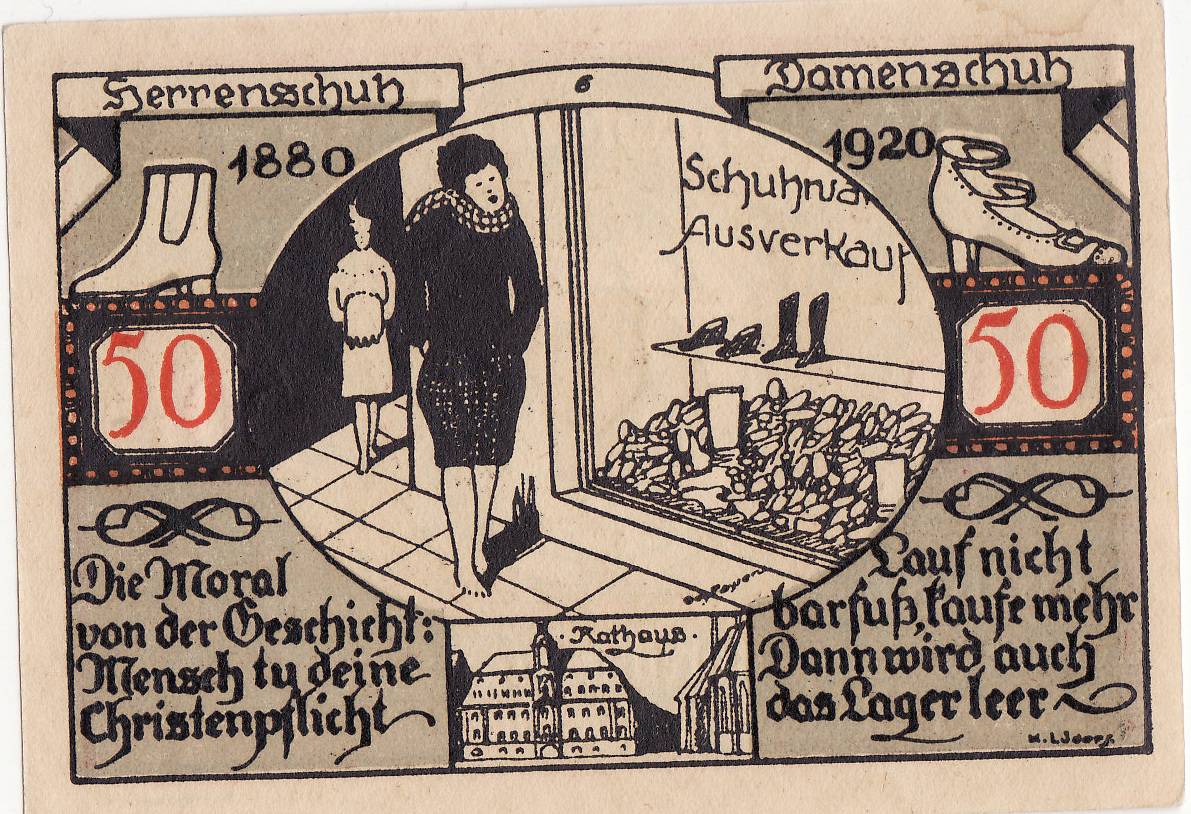 Herrenschuh
6
Damenschuh
1880
1920
Schuhwa
Ausverkauf
50
50
Die Moral
von der Geschicht:
Mensch tu deine
Christenpflicht
· Rathaus ·
Lauf nicht
barfuß, kaufe mehr
Dann wird auch
das Lager leer